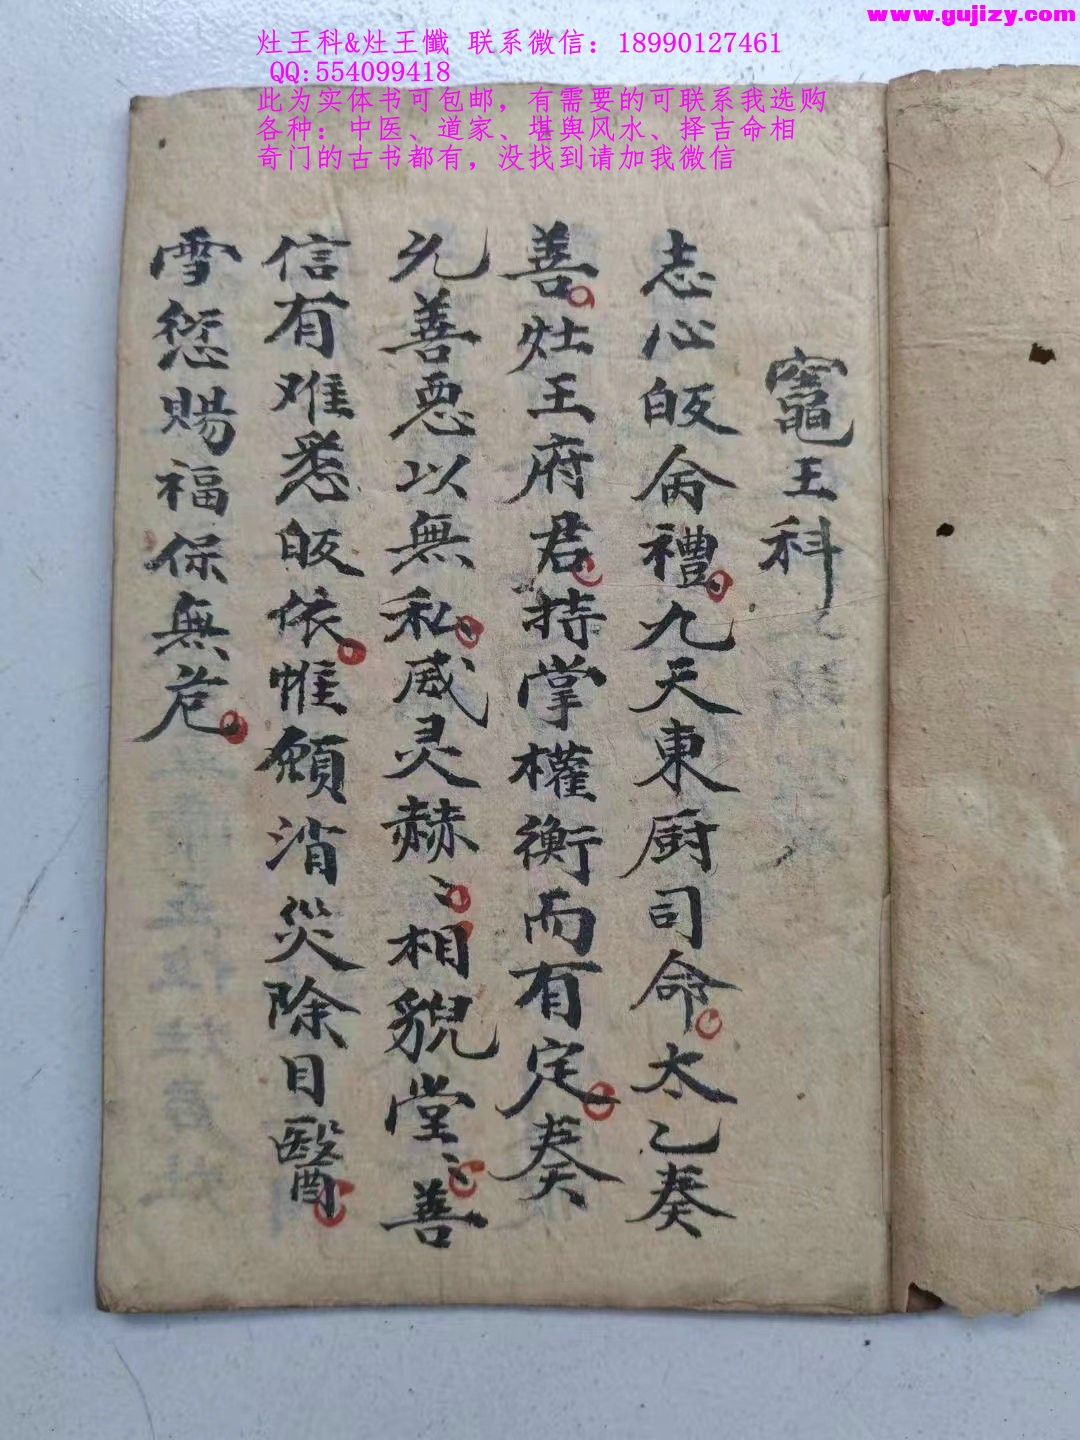 www.gujizy.com
灶王科&灶王懺 联系微信：18990127461
QQ:554099418
此为实体书可包邮，有需要的可联系我选购
各种：中医、道家、堪舆风水、择吉命相
奇门的古书都有，没找到请加我微信
竈王科
志心皈命禮九天東厨司命太乙奏
善灶王府君持掌權衡而有定奏
允善恶以無私威灵赫〻相貌堂〻善
信有难悉皈依惟願消災除目醫
雪愆賜福保無危